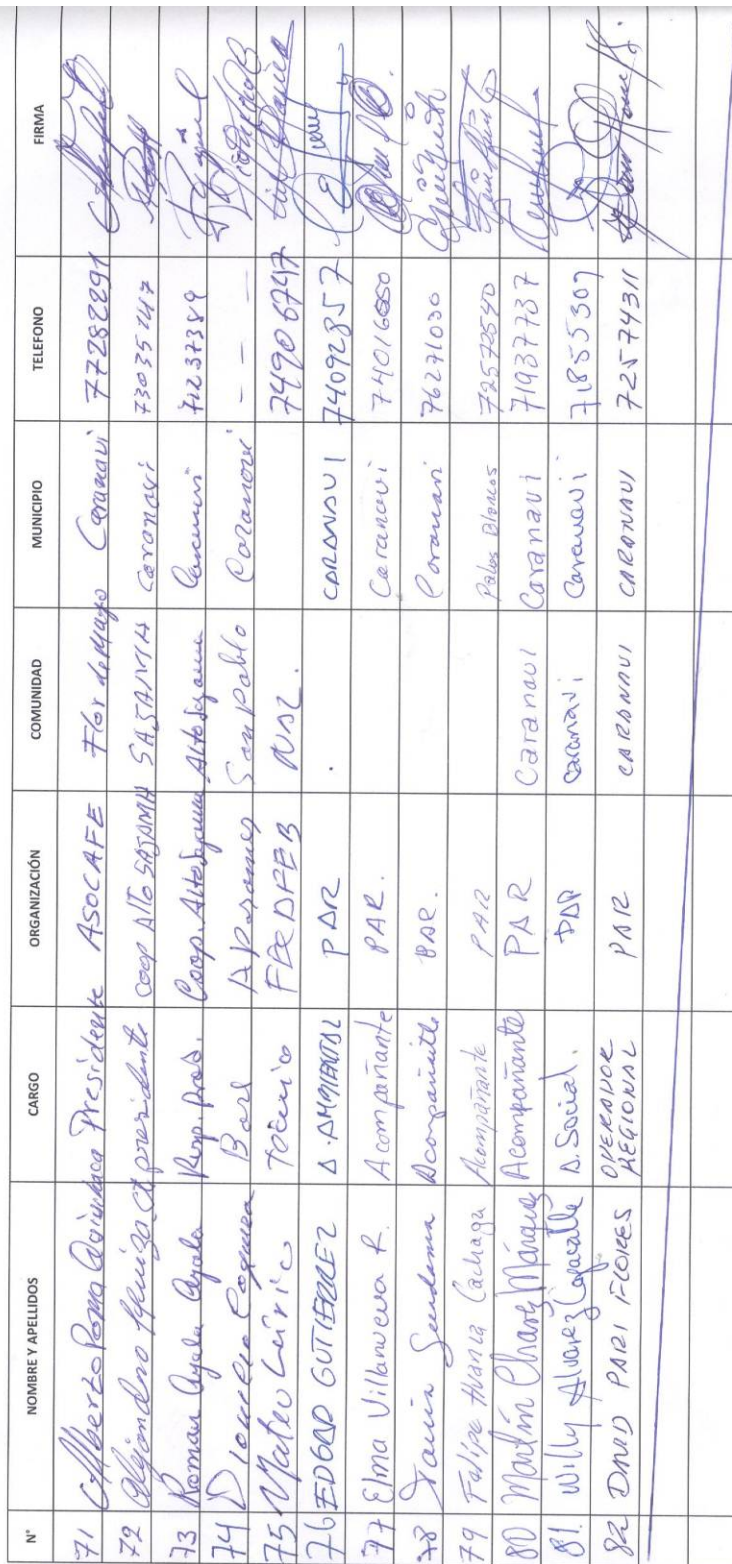 N° NOMBRE Y APELLIDOS CARGO ORGANIZACIÓN COMUNIDAD MUNICIPIO TELEFONO FIRMA
71 Alberto Poma Presidente ASOCAFE Flor de Mayo Caranavi 77282291
72 Alejandro presidente COOP Alto SAJAMA SAJAMA Caranavi 73035247
73 Roman Ayala Ayala Resp. Prod. Coop. Alto Sajama Alto Sajama Caranavi 71237389
74 Dionicio San Pablo Caranavi - - -
75 Mateo Técnico NAL. 74906747
76 EDGAR GUTIERREZ A. AMBIENTAL PAR CARANAVI 74092857
77 Elma Villanueva R. Acompañante PAR. Caranavi 74016650
78 Acompañante PAR. Caranavi 76271030
79 Felipe Huanca Cachaga Acompañante PAR Palos Blancos 72572540
80 Martín Chavez Márquez Acompañante PAR Caranavi Caranavi 71937737
81. Willy Alvarez A. Social. PAR Caranavi Caranavi 71855309
82 DAVID PARI FLORES OPERADOR REGIONAL PAR CARANAVI CARANAVI 72574311